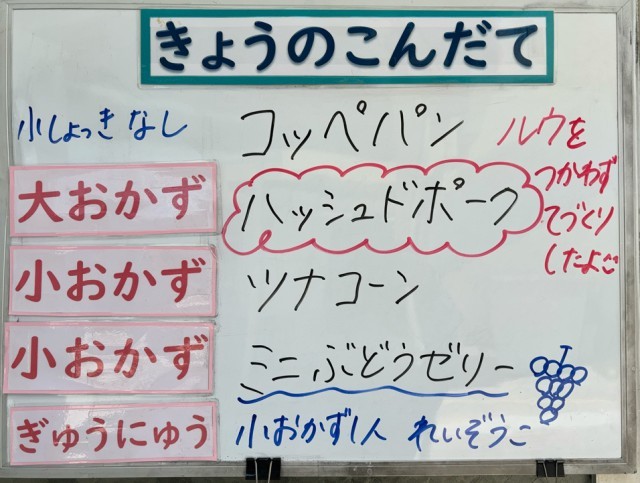 きょうのこんだて
小しょっきなし コッペパン
ルウを
つかわず
てづくり
したよ
大おかず ハッシュドポーク
小おかず ツナコーン
小おかず ミニぶどうゼリー
ぎゅうにゅう 小おかず1人 れいぞうこ